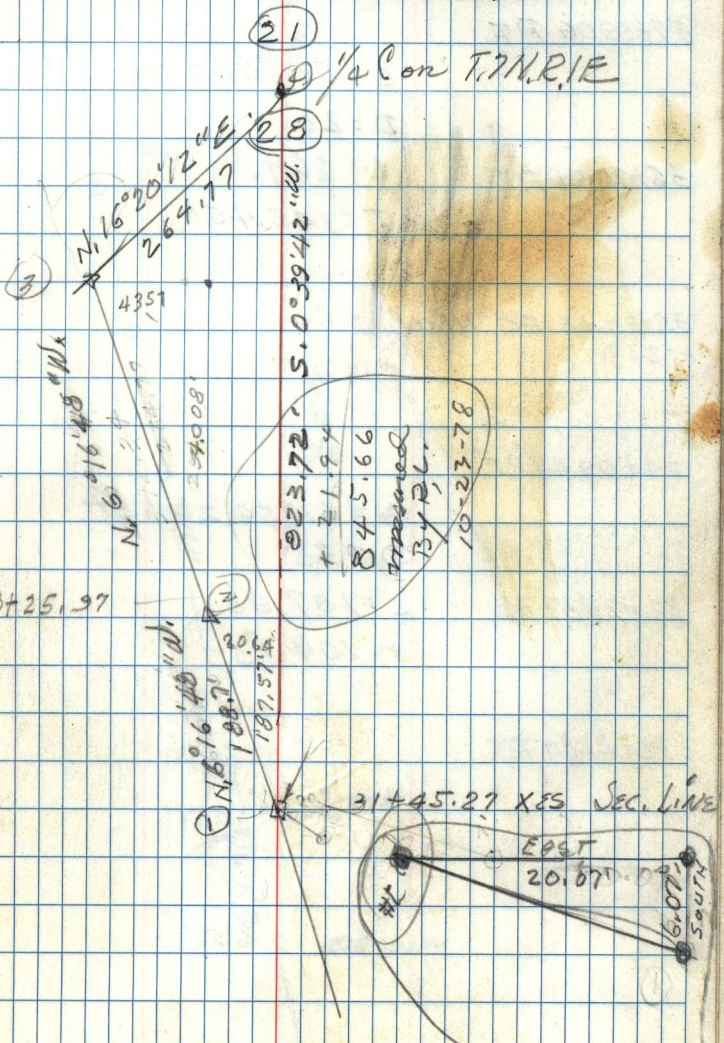 21
1/4 Cor T.7N.R.1E
28
N.16°20'12"E.
264.77
S.0°39'42"W.
3
43.57
N.6°16'48"W.
254.008'
823.72'
+ 21.94
845.66
measured
By R.L.
10-23-78
+25.97
2
20.64
N.6°16'48"W.
188.7'
187.57'
1
31+45.27 XES SEC. LINE
EAST
20.07'
6.07'
SOUTH
1